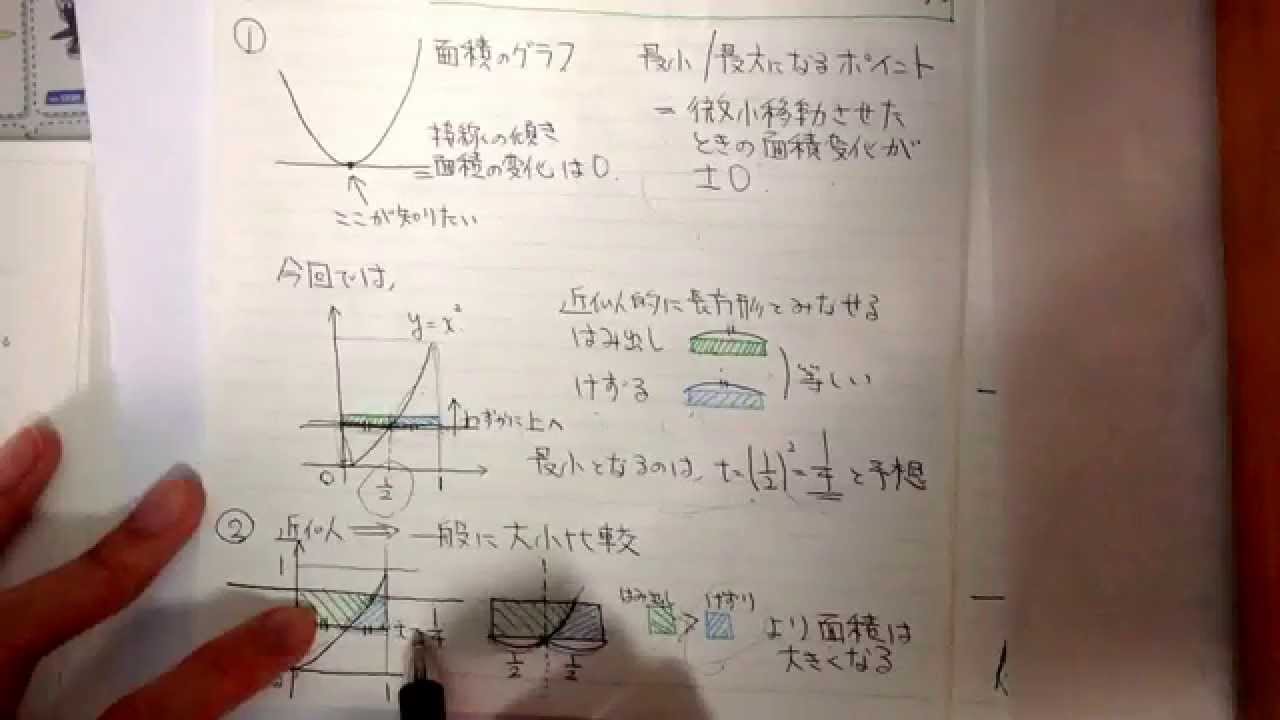 ①
面積のグラフ
接線の傾き
=面積の変化は0.
ここが知りたい
最小/最大になるポイント
= 微小移動させた
ときの面積変化が
±0.
今回では,
y=x²
わずかに上へ
0
1/2
1
近似的に長方形とみなせる
はみ出し
けずる
等しい
最小となるのは, t=(1/2)²=1/4 と予想
② 近似 ⇒ 一般に大小比較
1
t=1/4
1
1/2 1/2
はみ出し > けずり
より面積は
大きくなる